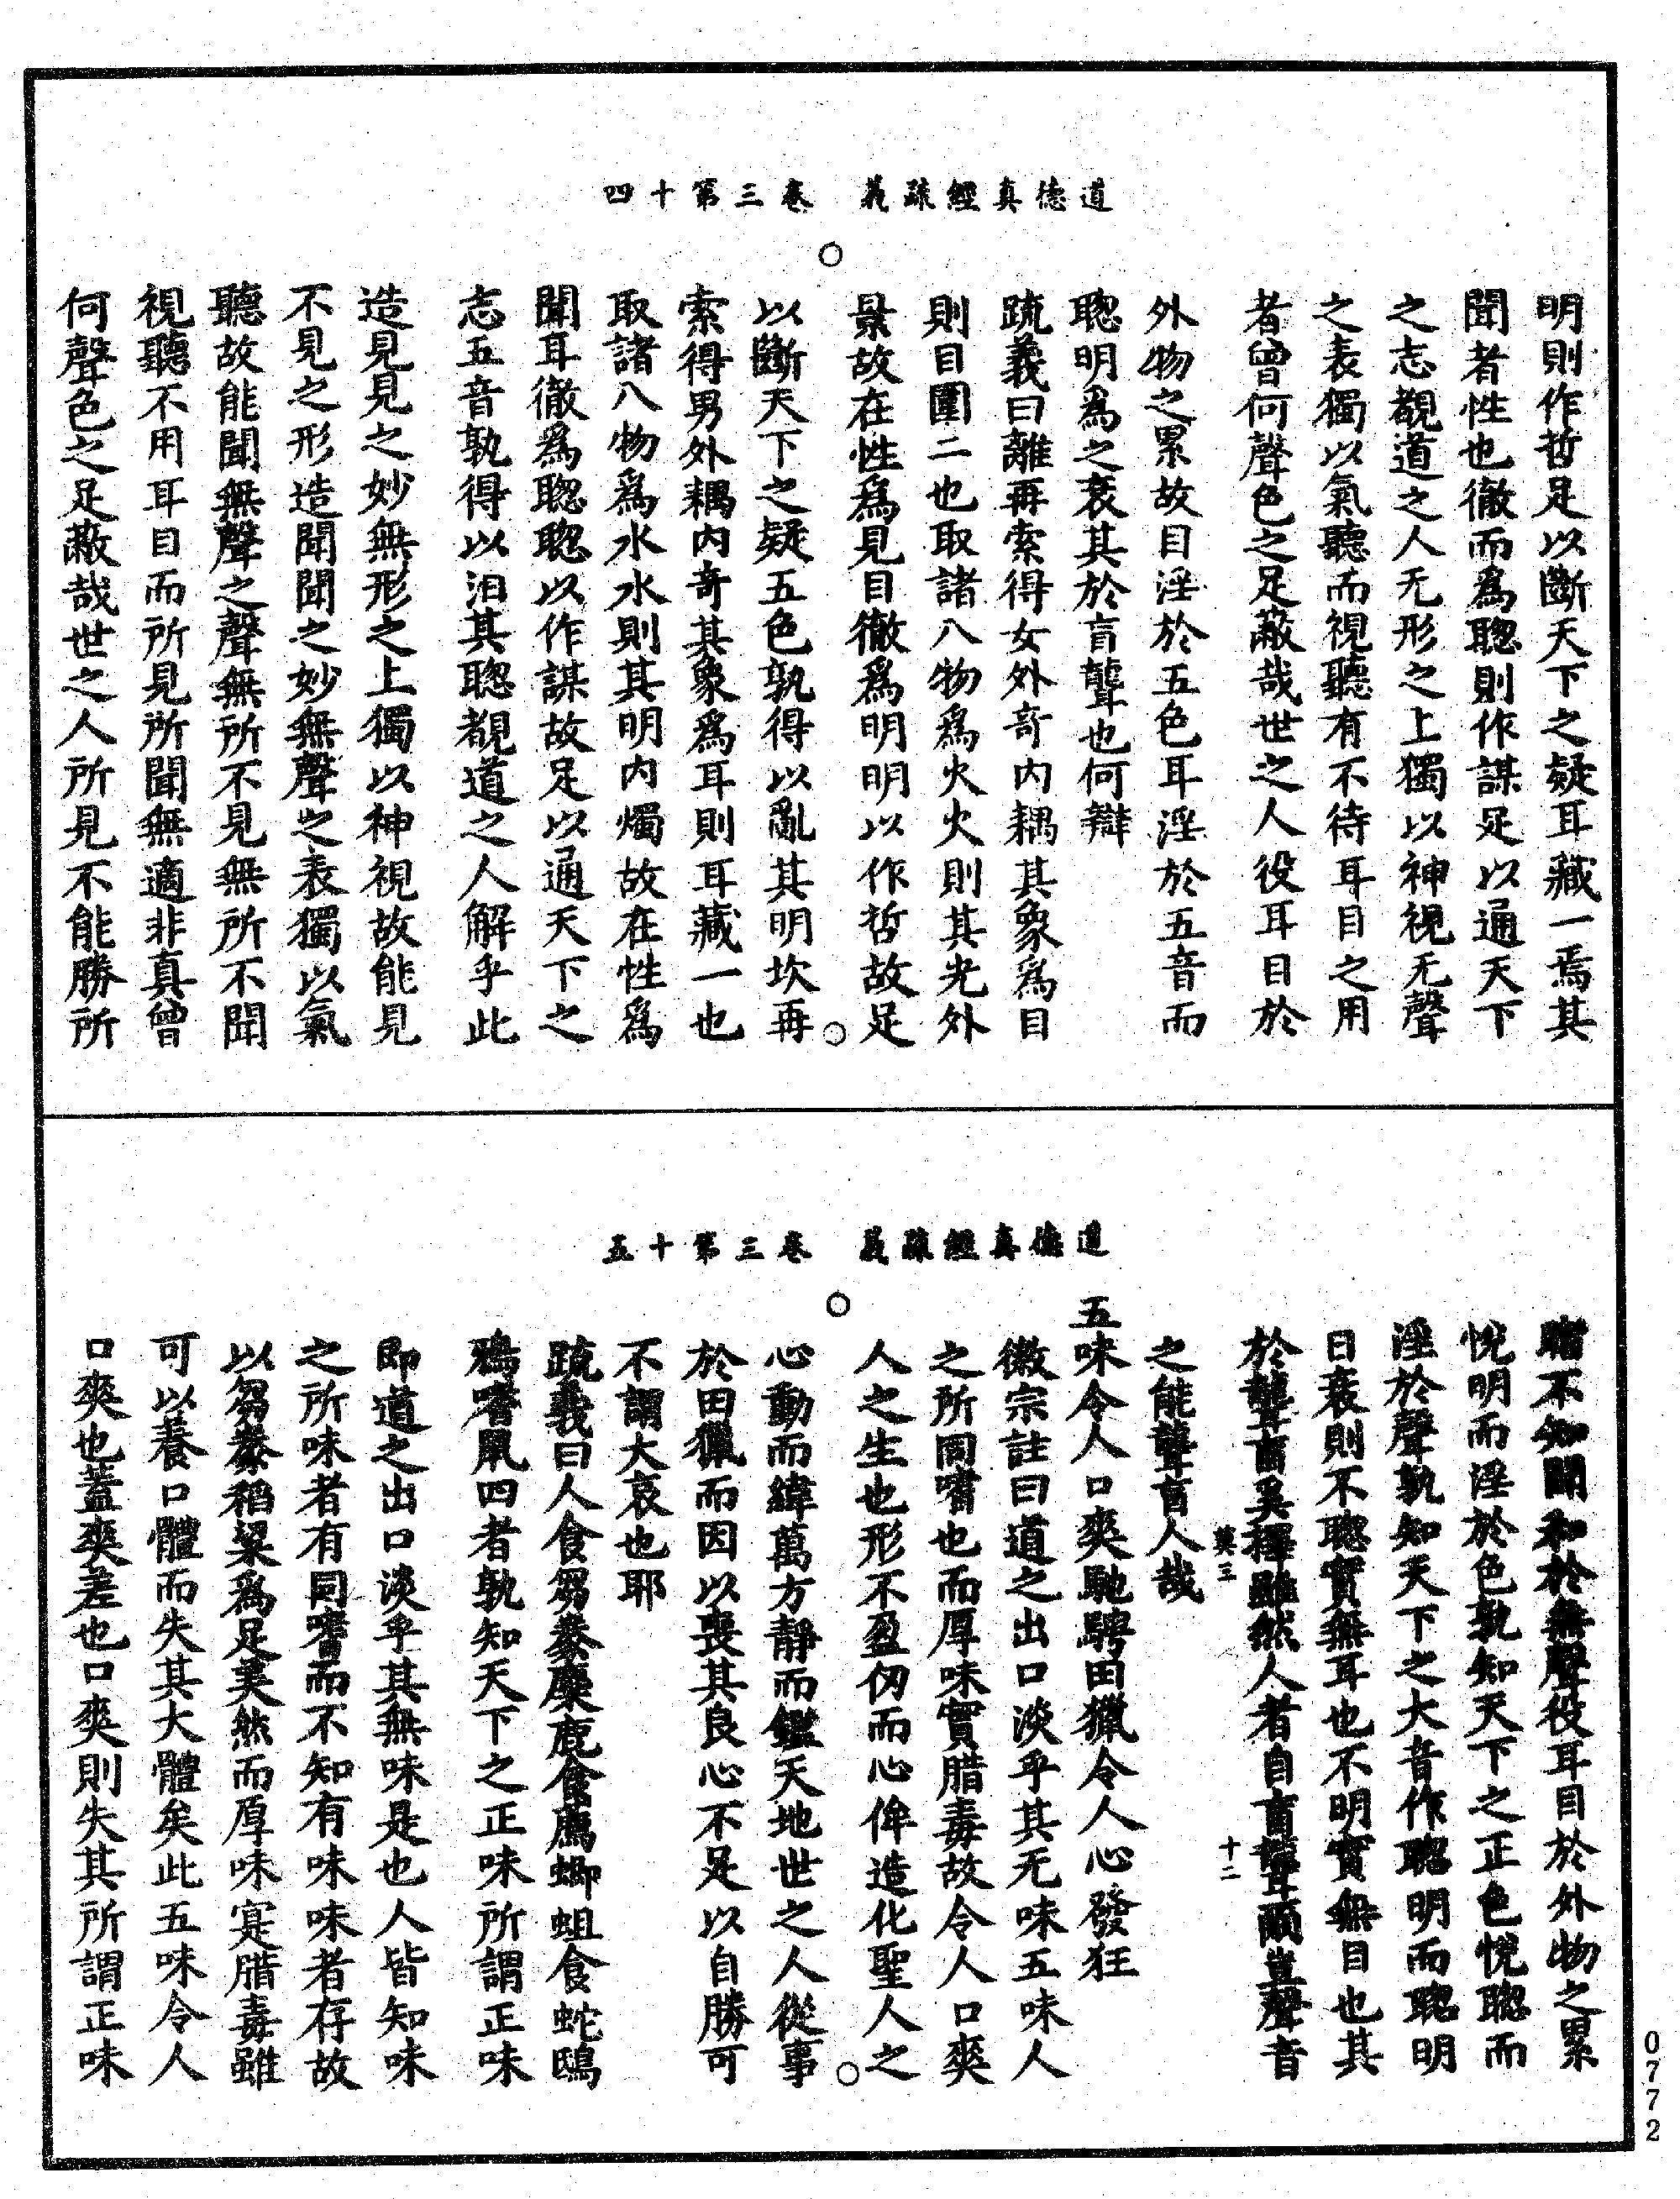 道德真經疏義　卷三第十四
明則作哲足以斷天下之疑耳藏一焉其
聞者性也徹而為聰則作謀足以通天下
之志覩道之人无形之上獨以神視无聲
之表獨以氣聽而視聽有不待耳目之用
者曾何聲色之足蔽哉世之人役耳目於
外物之累故目淫於五色耳淫於五音而
聰明為之衰其於盲聾也何辯
疏義曰離再索得女外奇内耦其象為目
則目圍二也取諸八物為火火則其光外
景故在性為見目徹為明明以作哲故足
以斷天下之疑五色孰得以亂其明坎再
索得男外耦内奇其象為耳則耳藏一也
取諸八物為水水則其明内燭故在性為
聞耳徹為聰聰以作謀故足以通天下之
志五音孰得以汩其聰覩道之人解乎此
造見見之妙無形之上獨以神視故能見
不見之形造聞聞之妙無聲之表獨以氣
聽故能聞無聲之聲無所不見無所不聞
視聽不用耳目而所見所聞無適非真曾
何聲色之足蔽哉世之人所見不能勝所
道德真經疏義　卷三第十五
睹不知聞和於無聲役耳目於外物之累
悅明而淫於色孰知天下之正色悅聰而
淫於聲孰知天下之大音作聰明而聰明
日衰則不聰實無耳也不明實無目也其
於聾盲奚擇雖然人者自盲聾爾豈聲音
之能聾盲人哉
莫三　十二
五味令人口爽馳騁田獵令人心發狂
徽宗註曰道之出口淡乎其无味五味人
之所同嗜也而厚味實腊毒故令人口爽
人之生也形不盈仞而心侔造化聖人之
心動而緯萬方靜而鑑天地世之人從事
於田獵而因以喪其良心不足以自勝可
不謂大哀也耶
疏義曰人食芻豢麋鹿食薦蝍蛆食蛇鴟
鴉嗜鼠四者孰知天下之正味所謂正味
即道之出口淡乎其無味是也人皆知味
之所味者有同嗜而不知有味味者存故
以芻豢稻粱為足美然而厚味寔腊毒雖
可以養口體而失其大體矣此五味令人
口爽也蓋爽差也口爽則失其所謂正味
0772